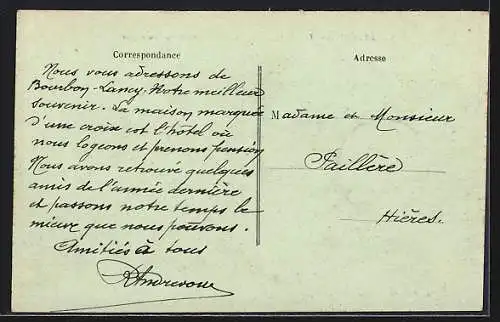 Correspondance
Nous vous adressons de
Bourbon-Lancy. Notre meilleur
souvenir. La maison marquée
d'une croix est l'hôtel où
nous logeons et prenons pension
Nous avons retrouvé quelques
amis de l'année dernière
et passons notre temps le
mieux que nous pouvons.
Amitiés à tous
Adresse
Madame et Monsieur
Paillère
Hières.